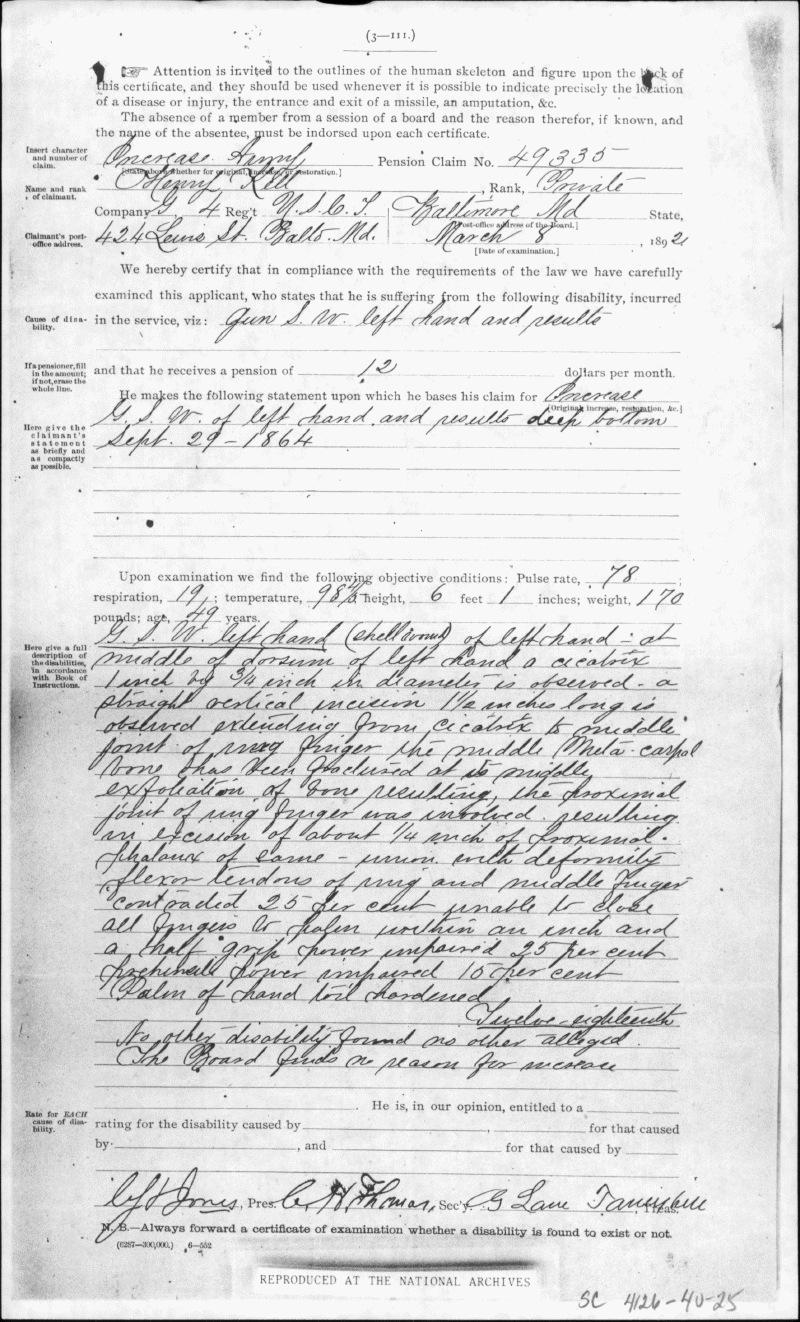 (3—111.)
☞ Attention is invited to the outlines of the human skeleton and figure upon the back of
this certificate, and they should be used whenever it is possible to indicate precisely the location
of a disease or injury, the entrance and exit of a missile, an amputation, &c.
The absence of a member from a session of a board and the reason therefor, if known, and
the name of the absentee, must be indorsed upon each certificate.
Insert character and number of claim.
Increase Army Pension Claim No. 49335
[State above whether for original, increase, or restoration.]
Name and rank of claimant.
Henry Kell, Rank, Private
Company G 4 Reg't U.S.C.T. Baltimore Md State,
[Post-office address of the Board.]
Claimant's post-office address.
424 Lewis St. Balto. Md. March 8, 1892
[Date of examination.]
We hereby certify that in compliance with the requirements of the law we have carefully
examined this applicant, who states that he is suffering from the following disability, incurred
Cause of disability.
in the service, viz: Gun S. W. left hand and results
If a pensioner, fill in the amount; if not, erase the whole line.
and that he receives a pension of 12 dollars per month.
He makes the following statement upon which he bases his claim for Increase
[Original, increase, restoration, &c.]
Here give the claimant's statement as briefly and as compactly as possible.
G. S. W. of left hand and results deep bottom
Sept. 29 - 1864
Upon examination we find the following objective conditions: Pulse rate, 78;
respiration, 19; temperature, 98 4/5 height, 6 feet 1 inches; weight, 170
pounds; age, 49 years.
Here give a full description of the disabilities, in accordance with Book of Instructions.
G. S. W. left hand (shell wound) of left hand - at
middle of dorsum of left hand a cicatrix
1 inch by 3/4 inch in diameter is observed - a
straight vertical incision 1 1/2 inches long is
observed extending from cicatrix to middle
joint of ring finger the middle Meta-carpal
bone has been fractured at its middle
exfoliation of bone resulting, the proximal
joint of ring finger was involved resulting
in excision of about 1/4 inch of proximal
phalanx of same - union with deformity
flexor tendons of ring and middle finger
contracted 25 per cent unable to close
all fingers to palm within an inch and
a half grip power impaired 25 per cent
prehensile power impaired 15 per cent
Palm of hand toil hardened
Twelve-eighteenth
No other disability found no other alleged
The Board finds no reason for increase
Rate for EACH cause of disability.
He is, in our opinion, entitled to a
rating for the disability caused by , for that caused
by , and for that caused by
Jones, Pres. C. H. Thomas, Sec'y. G Lane Taneyhill, Treas.
N. B.—Always forward a certificate of examination whether a disability is found to exist or not.
(6287—300,000.) 6—552
REPRODUCED AT THE NATIONAL ARCHIVES
SC 4126-40-25